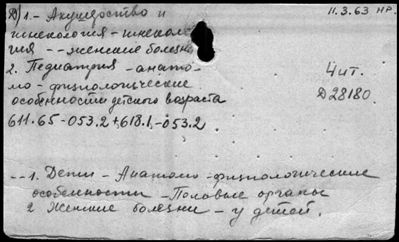 1. - Акушерство и
гинекология - гинеколо
гия - - женские болезни
2. Педиатрия - анато-
мо - физиологические
особенности детского возраста
611.65-053.2+618.1-053.2
11.3.63 НР.
4 чт.
D28180
- - 1. Дети - Анатомо - физиологические
особенности - Половые органы
2 Женские болезни - у детей.